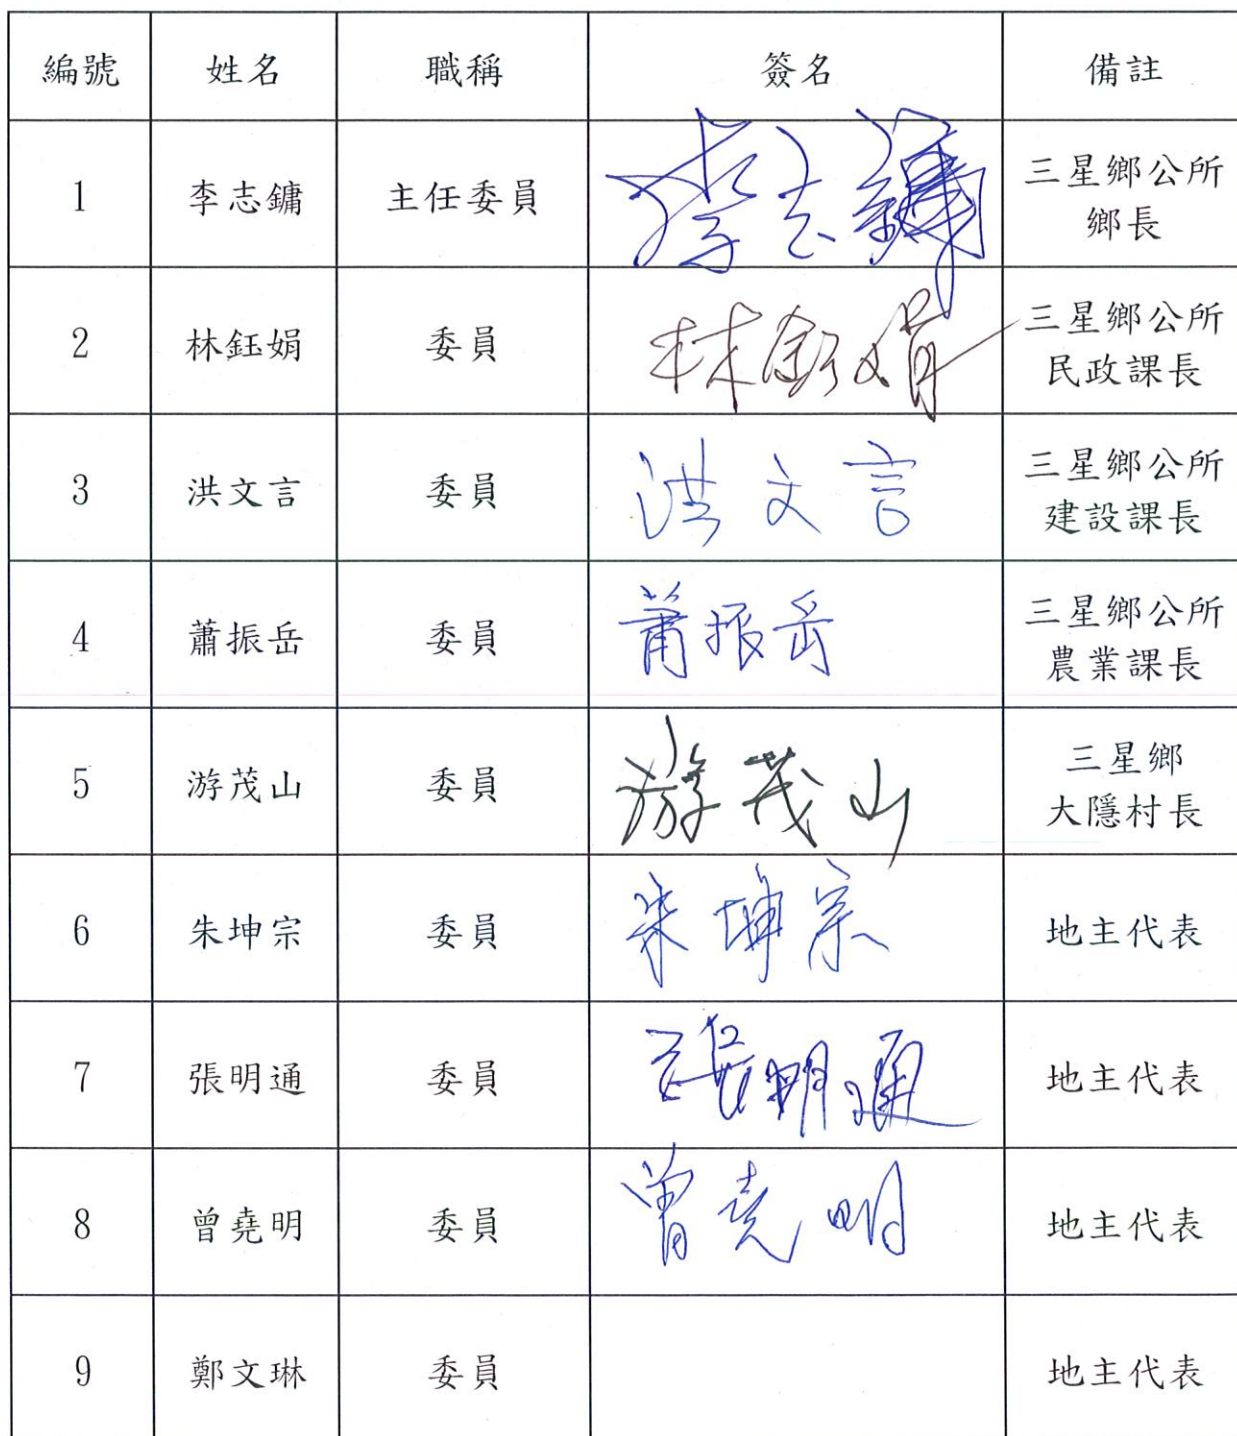 編號 姓名 職稱 簽名 備註
1 李志鏞 主任委員 李志鏞 三星鄉公所
鄉長
2 林鈺娟 委員 林鈺娟 三星鄉公所
民政課長
3 洪文言 委員 洪文言 三星鄉公所
建設課長
4 蕭振岳 委員 蕭振岳 三星鄉公所
農業課長
5 游茂山 委員 游茂山 三星鄉
大隱村長
6 朱坤宗 委員 朱坤宗 地主代表
7 張明通 委員 張明通 地主代表
8 曾堯明 委員 曾堯明 地主代表
9 鄭文琳 委員 地主代表